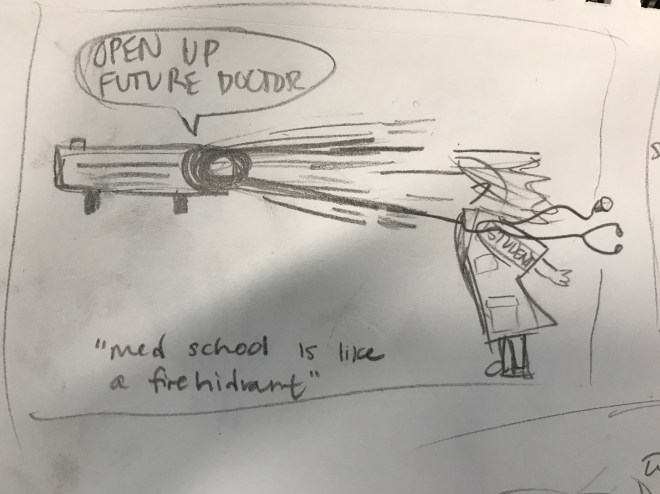 OPEN UP
FUTURE DOCTOR
STUDENT
"med school is like
a firehidrant"